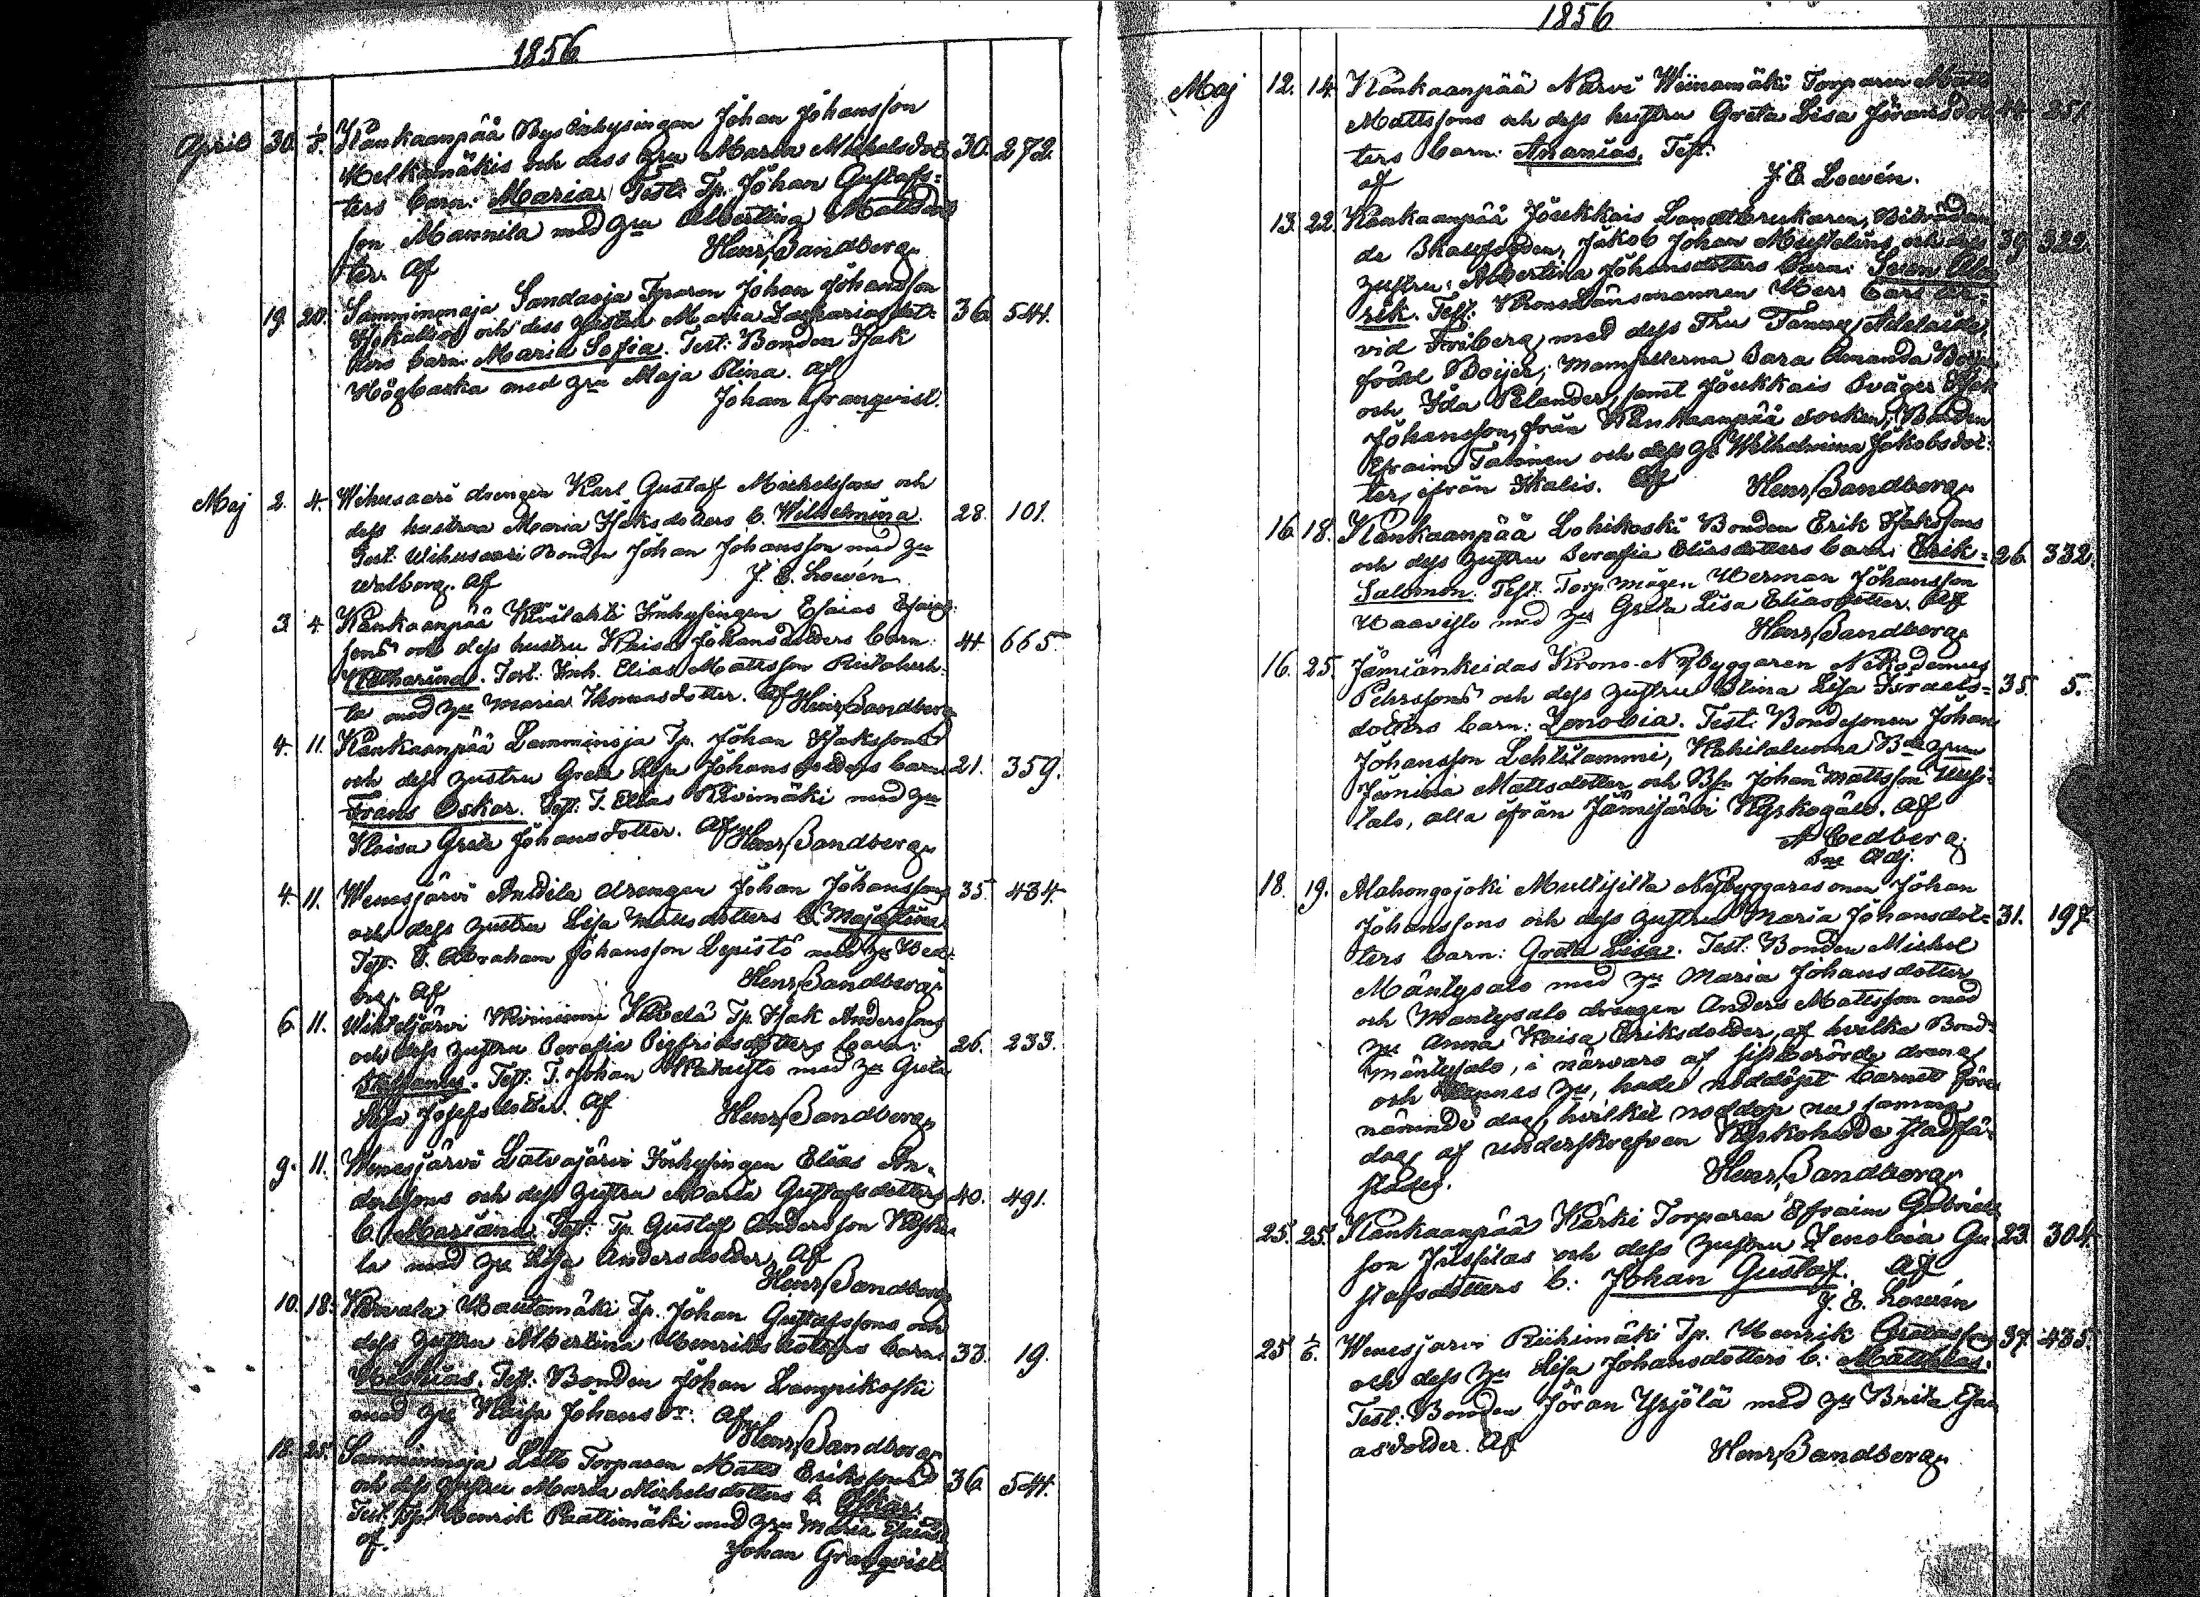 1856
April 30. 1/5. Kankaanpää Nystabysingen Johan Johansson
Melkamäkis och dess hru Maria Michelsdot 30. 272.
ters barn: Maria. Test: Tp. Johan Gustafs=
son Mannila med hru Albertina Mattsdot
ter. Af Henr. Sandberg.
19. 20. Samminmaja Sandasja Tparen Johan Johansson
och dess hustru Maria Zachariasdot= 36. 544.
ters barn: Maria Sofia. Test: Bonden Isak
Högbacka med hru Maja Stina. Af
Johan Granqvist.
Maj 2. 4. Wihusaari drengen Karl Gustaf Michelssons och
dess hustrus Maria Isaksdotters b. Wilhelmina. 28. 101.
Test: Wihusaari Bonden Johan Johansson med hru
Walborg. Af J. E. Lowén
3. 4. Kankaanpää Inhysingen Esaias Esaias
sons och dess hustru Kaisa Johansdotters barn: 44. 665.
Katharina. Test: Inh. Elias Mattsson
ta med hru Maria Thomasdotter. Af Henr. Sandberg
4. 11. Kankaanpää Lamminoja Tp. Johan Isakssons
och dess hustru Greta Lisa Johansdotters barn 21. 359.
Frans Oskar. Test: T. Elias Kivimäki med hru
Kaisa Greta Johansdotter. Af Henr. Sandberg.
4. 11. Wenesjärvi Anttila drengen Johan Johanssons 35. 434.
och dess hustru Lisa Mattsdotters b. Maja Stina.
Test: T. Abraham Johansson Lepistö med hru Hed=
vig. Af Henr. Sandberg.
6. 11. Wihteljärvi Niiniemi Tp. Isak Anderssons
och dess hustru Serafia Sigfridsdotters barn: 26. 233.
Stephanus. Test: T. Johan med hru Greta
Lisa Josefsdotter. Af Henr. Sandberg.
9. 11. Wenesjärvi Latvajärvi Inhysingen Elias An=
derssons och dess hustru Maria Gustafsdotters 40. 491.
b. Mariana. Test: Tp. Gustaf Andersson
la med hru Lisa Andersdotter. Af
Henr. Sandberg
10. 18. Wautamäki Tp. Johan Gustafssons och
dess hustru Albertina Henriksdotters barn: 33. 19.
Test: Bonden Johan Lampikoski
med hru Kaisa Johansdr. Af
Henr. Sandberg
18. 25. Samminmaja Letto Torparen Matts Erikssons
och dess hustru Maria Michelsdotters b. Oskar. 36. 544.
Test: Tp. Henrik Raatimäki med hru Maria Esaiasd
af. Johan Granqvist
1856
Maj 12. 14. Kankaanpää Narvi Wiinamäki Torparen Matts
Mattssons och dess hustru Greta Lisa Jöransdot 44. 251.
ters barn: Ananias. Test:
af J. E. Lowén.
13. 22. Kankaanpää Joukkais Landtbrukaren, Biträdan
de Skallfogden, Jakob Johan Mustelins och dess 39. 322.
hustru, Albertina Johansdotters barn: Sven Ala
rik. Test: Kronolänsmannen Herr Carl
vid Friberg, med dess Fru Fanny Adelaide,
född Boijer, Mamsellerna Sara Amanda Boijer
och Ida Relander, samt Joukkais Svåger Isak
Johansson, från Kankaanpää socken, Bonden
Efraim Tamminen och dess hu Wilhelmina Jakobsdot=
ter, ifrån Ikalis. Af Henr. Sandberg.
16. 18. Kankaanpää Lohikoski Bonden Erik Isakssons
och dess hustru Serafia Eliasdotters barn: Erik= 26. 332.
Salomon. Test: Torp. mågen Herman Johansson
Haavisto med hu Greta Lisa Eliasdotter. Af
Henr. Sandberg.
16. 25. Jämiänkeidas Krono-Nybyggaren Nikodemus
Pehrssons och dess hustru Stina Lisa Israels= 35. 5.
dotters barn: Zenobia. Test: Bondesonen Johan
Johansson Lehtilammi, Kahilaluoma Bde hrun
Jemina Mattsdotter och Bsn Johan Mattsson Uusi=
talo, alla ifrån Jämijärvi Kyrkogäld. Af
A Cedberg
Sne Adj.
18. 19. Alahongojoki Multisilta Nybyggaresonen Johan
Johanssons och dess hustru Maria Johansdot= 31. 197.
ters barn: Greta Lisa. Test: Bonden Michel
Mäntysalo med hu Maria Johansdotter
och Mäntysalo drängen Anders Mattsson med
hu Anna Kaisa Eriksdotter, af hvilka Bond=
Mäntysalo, i närvaro af sistberörde dreng
och hannes hu, hade nöddöpt barnet före=
nämnde dag, hvilket noddop nu samma
dag af underskrefven Kyrkoherde stadfä=
stades. Henr. Sandberg.
25. 25. Kankaanpää Kärki Torparen Efraim Gabriels
son Jussilas och dess hustru Zenobia Gu= 23. 304.
stafsdotters b: Johan Gustaf. Af
J. E. Lowén
25. 1/6. Wenesjärvi Riihimäki Tp. Henrik 37. 435.
och dess hu Lisa Johansdotters b: Matthias.
Test: Bonden Jöran Yrjölä med hu Brita Esai
asdotter. Af Henr. Sandberg.